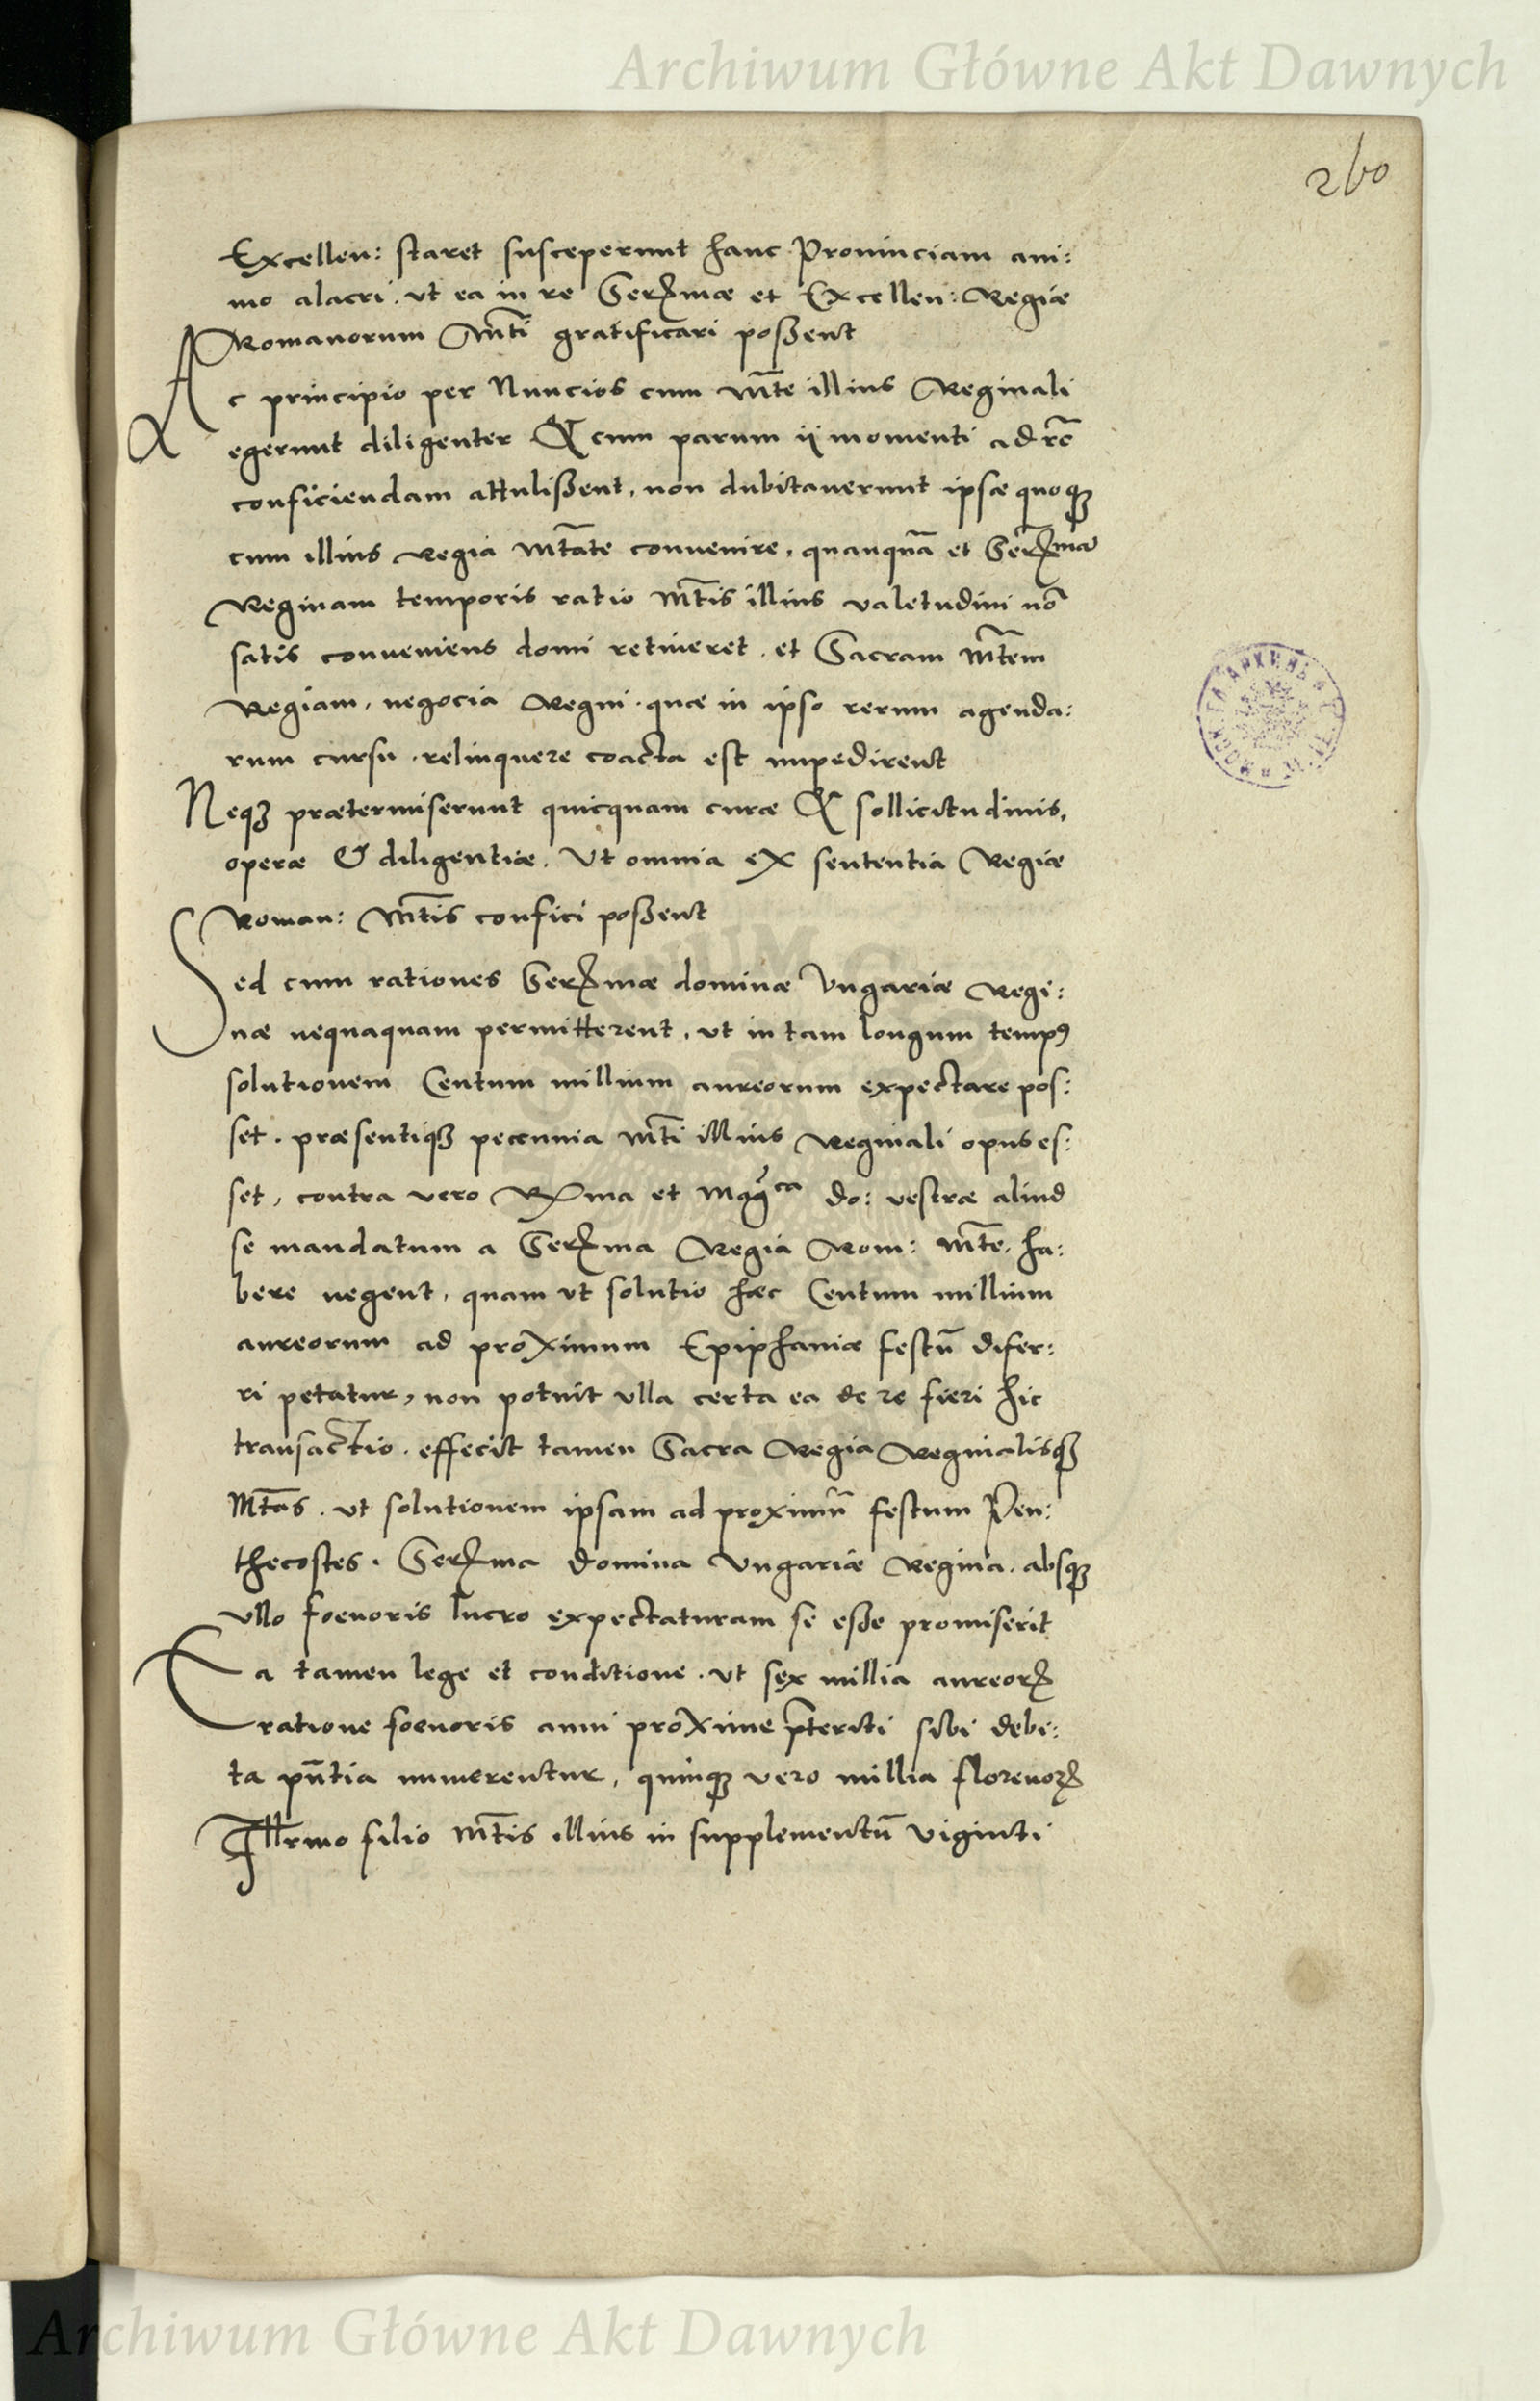 Archiwum Główne Akt Dawnych
260
Excellen: staret susceperunt hanc Prouinciam ani:
mo alacri. ut ea in re Serẽmae et Excellen: Regiae
Romanorum Mti gratificari possent
Ac principio per Nuncios cum Mte illius Reginali
egerunt diligenter & cum parum ii momenti ad rẽ
conficiendam attulissent, non dubitauerunt ipsae quoq3
cum illius Regia Mtate conuenire, quanquã et Serẽma
Reginam temporis ratio Mtis illius valetudini nõ
satis conueniens domi retineret. et Sacram Mtem
Regiam, negocia Regni. quae in ipso rerum agenda:
rum cursu. relinquere coacta est impedirent
Neq3 praetermiserunt quicquam curae & sollicitudinis,
operae & diligentiae. Ut omnia ex sententia Regiae
Roman: Mtis confici possent
Sed cum rationes Serẽmae dominae Vngariae Regi:
nae nequaquam permitterent, ut in tam longum temp9
solutionem Centum millium aureorum expectare pos:
set. praesentiq3 pecunia Mti illius Reginali opus es:
set, contra vero Rẽma et Magca do: vestrae aliud
se mandatum a Serẽma Regia Rom: Mte. ha:
bere negent, quam ut solutio haec Centum millium
aureorum ad proximum Epiphaniae festũ difer:
ri petatur, non potuit ulla certa ea de re fieri hic
transactio. effecit tamen Sacra Regia Reginalisq3
Mtas. ut solutionem ipsam ad proximũ festum Pen:
thecostes. Serẽma domina Vngariae Regina. absq3
ullo foenoris lucro expectaturam se esse promiserit
Ea tamen lege et conditione. ut sex millia aureorꝝ
ratione foenoris anni proxime p̃teriti sibi debi:
ta pñtia numerentur, quinq3 vero millia florenorꝝ
Illrmo filio Mtis illius in supplementũ viginti
Archiwum Główne Akt Dawnych